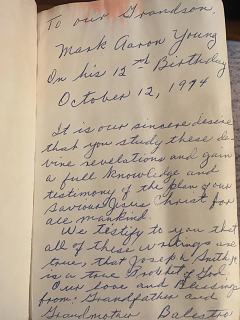 To our Grandson.
Mark Aaron Young
On his 12th Birthday
October 12, 1994
It is our sincere desire
that you study these de-
vine revelations and gain
a full knowledge and
testimony of the plan of our
Saviour Jesus Christ for
all mankind.
We testify to you that
all of these writings are
true, that Joseph Smith Jr.
is a true Prophet of God.
Our love and Blessings
from: Grandfather and
Grandmother Balestro